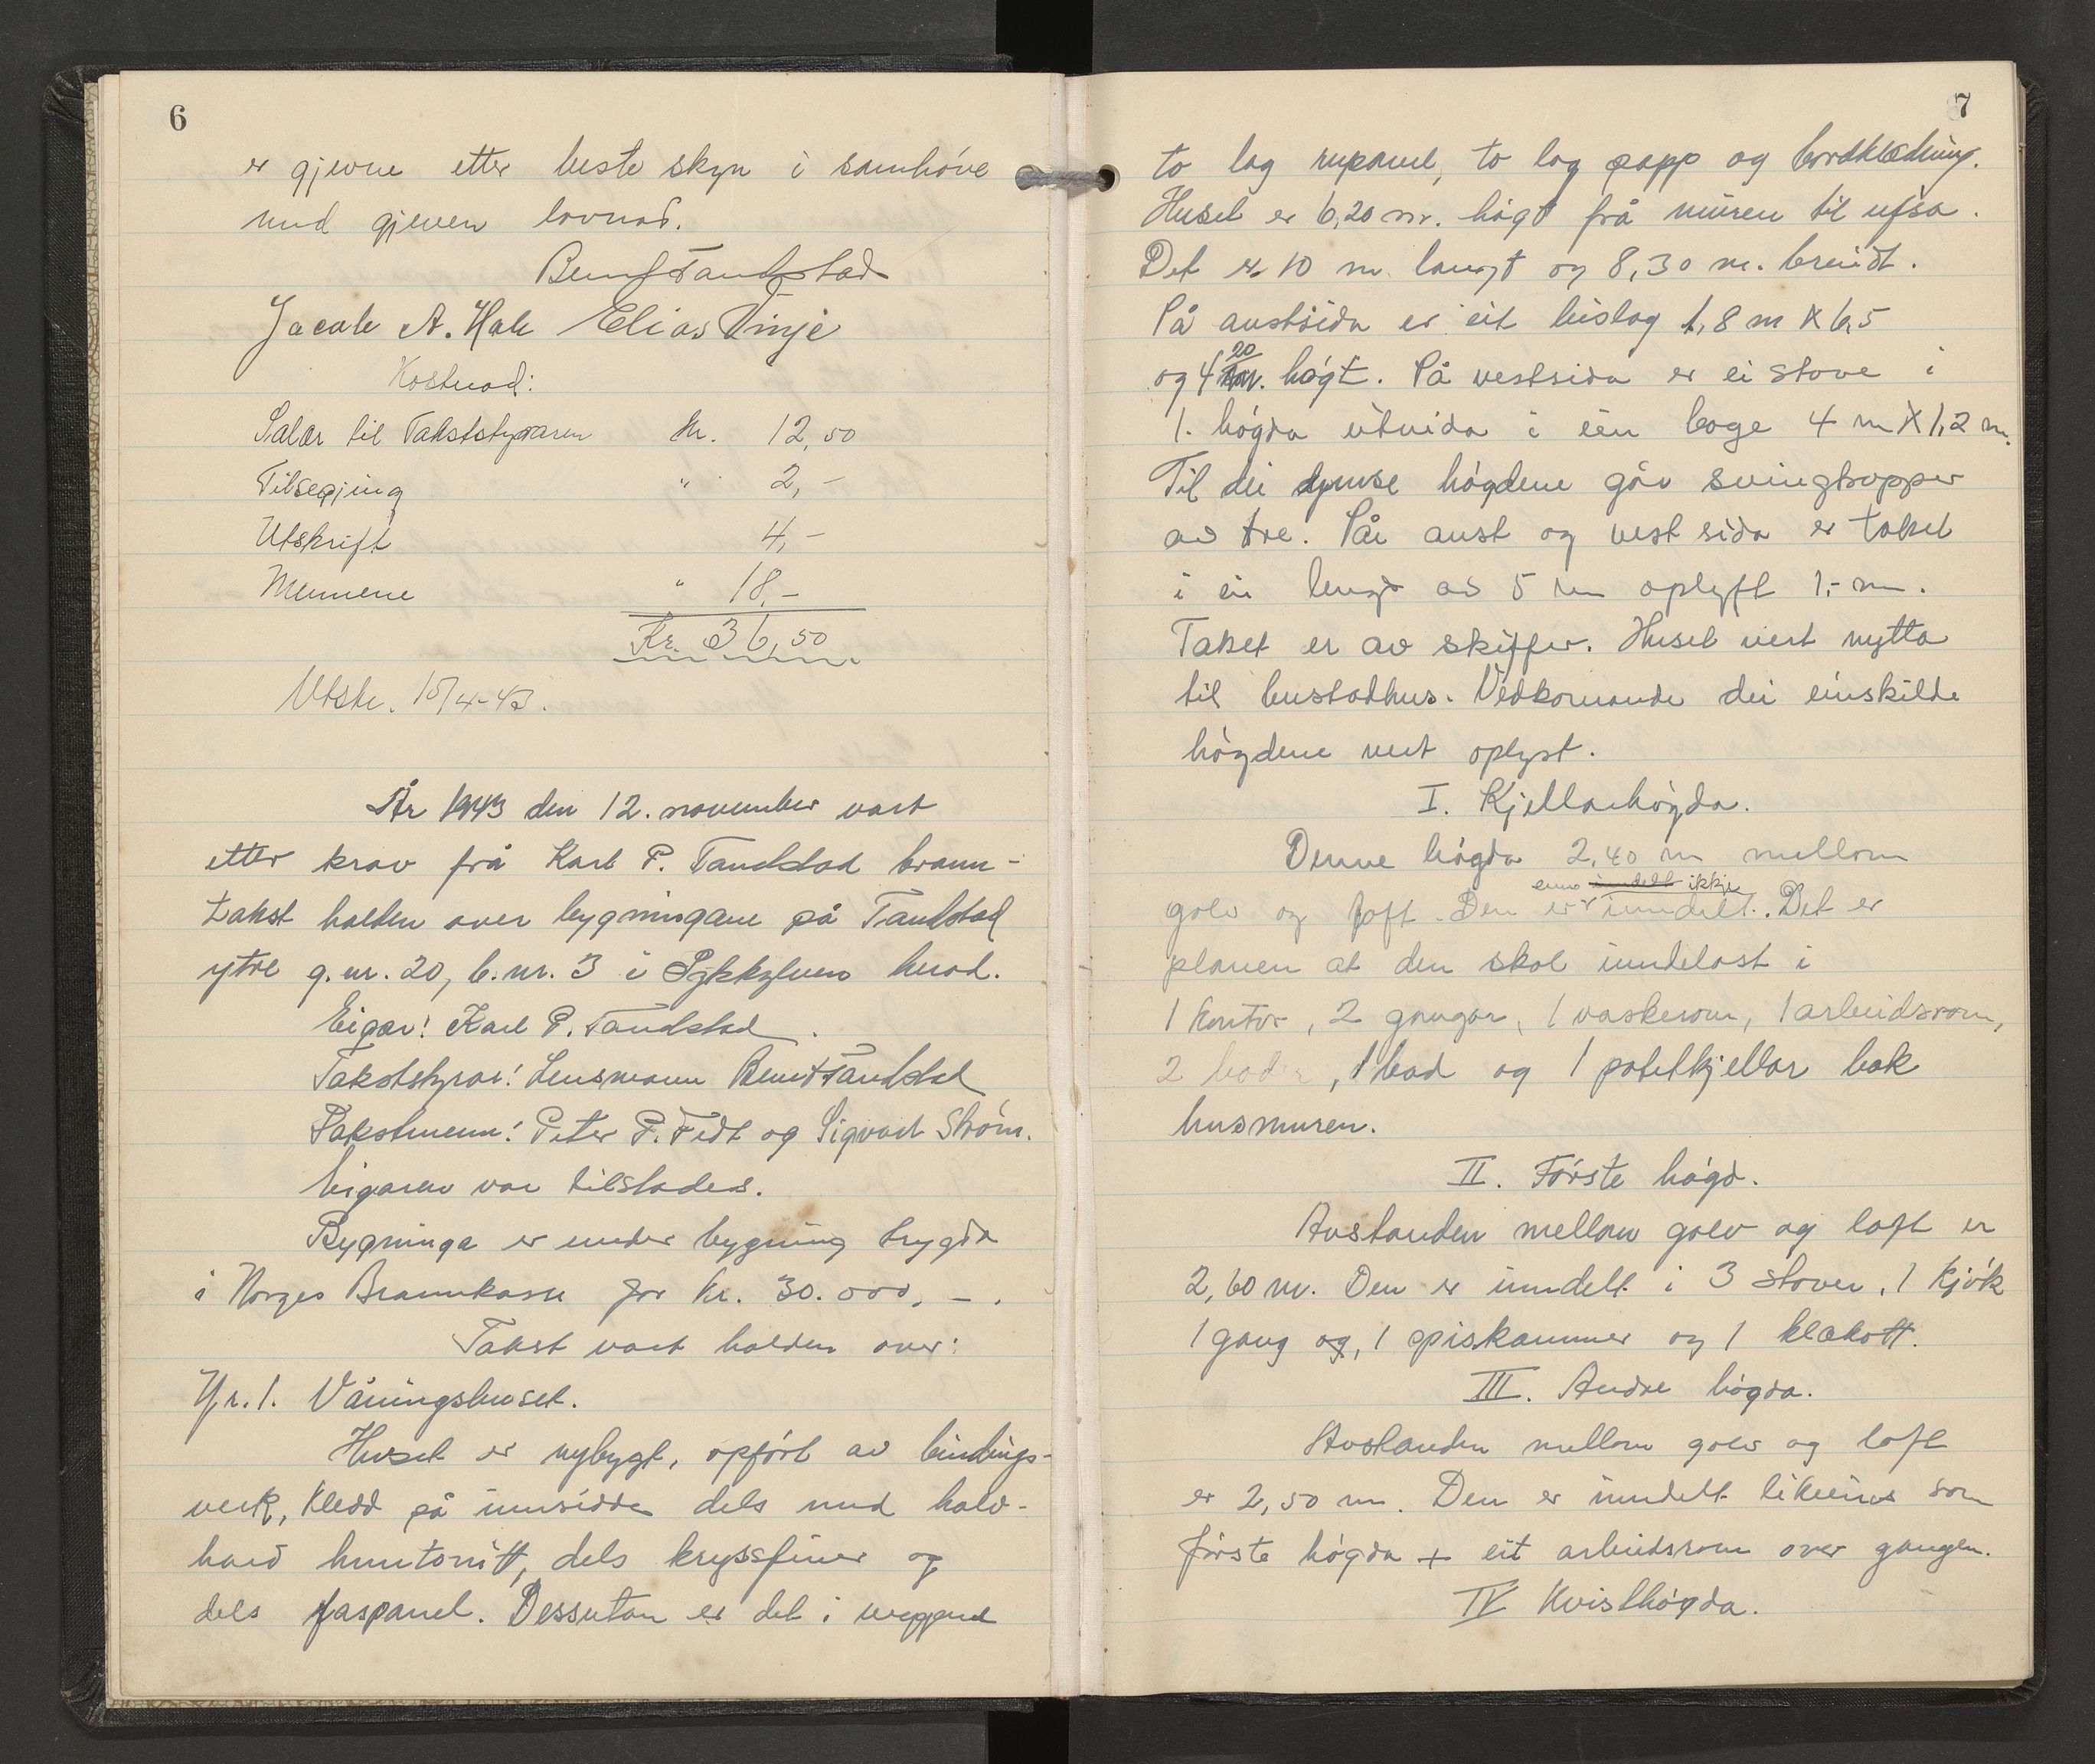 6
er gjevne etter beste skyn i samhøve
med gjeven lovnad.
Bernt Tandstad
Jacob A. Hole Elias Vinje
Kostnad:
Salær til Takststyraren kr. 12,50
Tilsegjing " 2,-
Utskrift 4,-
Mennene " 18,-
Kr. 36,50
Utskr. 15/4-43.
År 1943 den 12. november vart
etter krav frå Karl P. Tandstad brann-
takst halden over bygningane på Tandstad
ytre g.nr. 20, b.nr. 3 i Sykkylven herad.
Eigar: Karl P. Tandstad.
Takststyrar: Lensmann Bernt Tandstad
Takstmenn: Peter P. Fedt og Sigvart Strøm.
Eigaren var tilstades.
Bygninga er under bygning trygda
i Norges Brannkasse for kr. 30.000,-.
Takst vart halden over:
Nr. 1. Våningshuset.
Huset er nybygt, opført av bindings-
verk, kledd på innsida dels med halv-
hard huntonitt, dels kryssfiner og
dels faspanel. Dessutan er det i veggene
7
to lag rupanel, to lag papp og bordklædning.
Huset er 6,20 m. høgt frå muren til ufsa.
Det er 10 m langt og 8,30 m. breidt.
På austsida er eit bislag 1,8 m X 6,5
og 4 20 m. høgt. På vestsida er ei stove i
1. høgda utvida i ein boge 4 m X 1,2 m.
Til dei ymse høgdene går svingtropper
av tre. På aust og vest sida er taket
i ei lengd av 5 m oplyft 1,- m.
Taket er av skiffer. Huset vert nytta
til bustadhus. Vedkomande dei einskilde
høgdene vert oplyst.
I. Kjellarhøgda.
Denne høgda 2,40 m mellom
enno inndelt ikkje
golv og loft. Den er inndelt. Det er
planen at den skal inndelast i
1 kontor, 2 gangar, 1 vaskerom, 1 arbeidsrom,
2 boder, 1 bad og 1 potetkjellar bak
husmuren.
II. Første høgd.
Avstanden mellom golv og loft er
2,60 m. Den er inndelt i 3 stover, 1 kjøk
1 gang og, 1 spiskammer og 1 klækott.
III. Andre høgda.
Avstanden mellom golv og loft
er 2,50 m. Den er inndelt likeins som
første høgda + eit arbeidsrom over gangen.
IV Kvisthøgda.